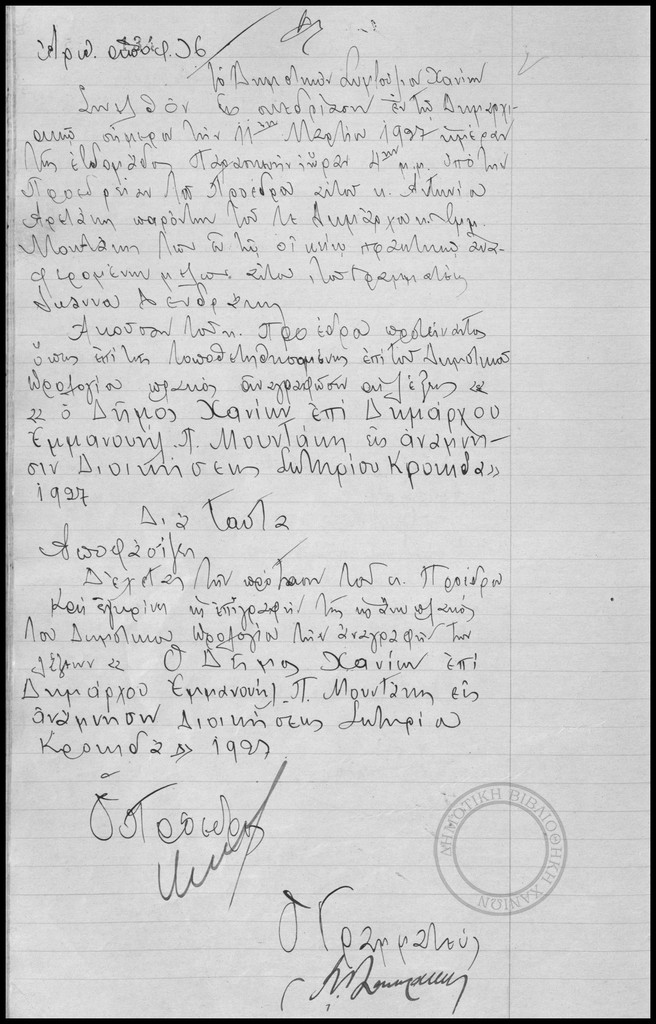 Ἀριθ. ἀποφ. 36
Τὸ Δημοτικὸν Συμβούλιον Χανίων
Συνελθὸν εἰς συνεδρίασιν ἐν τῷ Δημαρχι-
ακῷ σήμερον τὴν 11ην Μαρτίου 1927 ἡμέραν
τῆς ἑβδομάδος Παρασκευὴν ὥραν 4ην μ.μ. ὑπὸ τὴν
Προεδρείαν τοῦ Προέδρου αὐτοῦ κ. Ἀντωνίου
παρόντων τοῦ τε Δημάρχου κ. Ἐμμ.
Μουντάκη τῶν ἐν τῷ οἰκείῳ πρακτικῷ ἀνα-
φερομένων μελῶν αὐτοῦ τοῦ γραμματέως
Ἰωάννου Δενδράκη
Ἀκοῦσαν τοῦ κ. Προέδρου προτείναντος
ὅπως ἐπὶ τῆς τοποθετηθησομένης ἐπὶ τοῦ Δημοτικοῦ
Ὡρολογίου πλακὸς ἀναγραφῶσιν αἱ λέξεις «
« ὁ Δῆμος Χανίων ἐπὶ Δημάρχου
Ἐμμανουὴλ Π. Μουντάκη εἰς ἀνάμνη-
σιν Διοικήσεως Σωτηρίου Κροκιδᾶ»
1927
Διὰ ταῦτα
Ἀποφασίζει
Δέχεται τὴν πρότασιν τοῦ κ. Προέδρου
καὶ ἐγκρίνει ἐπιγραφὴν τῆς ὡς ἄνω πλακὸς
τοῦ Δημοτικοῦ Ὡρολογίου τὴν ἀναγραφὴν τῶν
λέξεων « Ὁ Δῆμος Χανίων ἐπὶ
Δημάρχου Ἐμμανουὴλ Π. Μουντάκη εἰς
ἀνάμνησιν Διοικήσεως Σωτηρίου
Κροκιδᾶ» 1927
Ὁ Πρόεδρος
Ὁ Γραμματεύς
ΔΗΜΟΤΙΚΗ ΒΙΒΛΙΟΘΗΚΗ ΧΑΝΙΩΝ